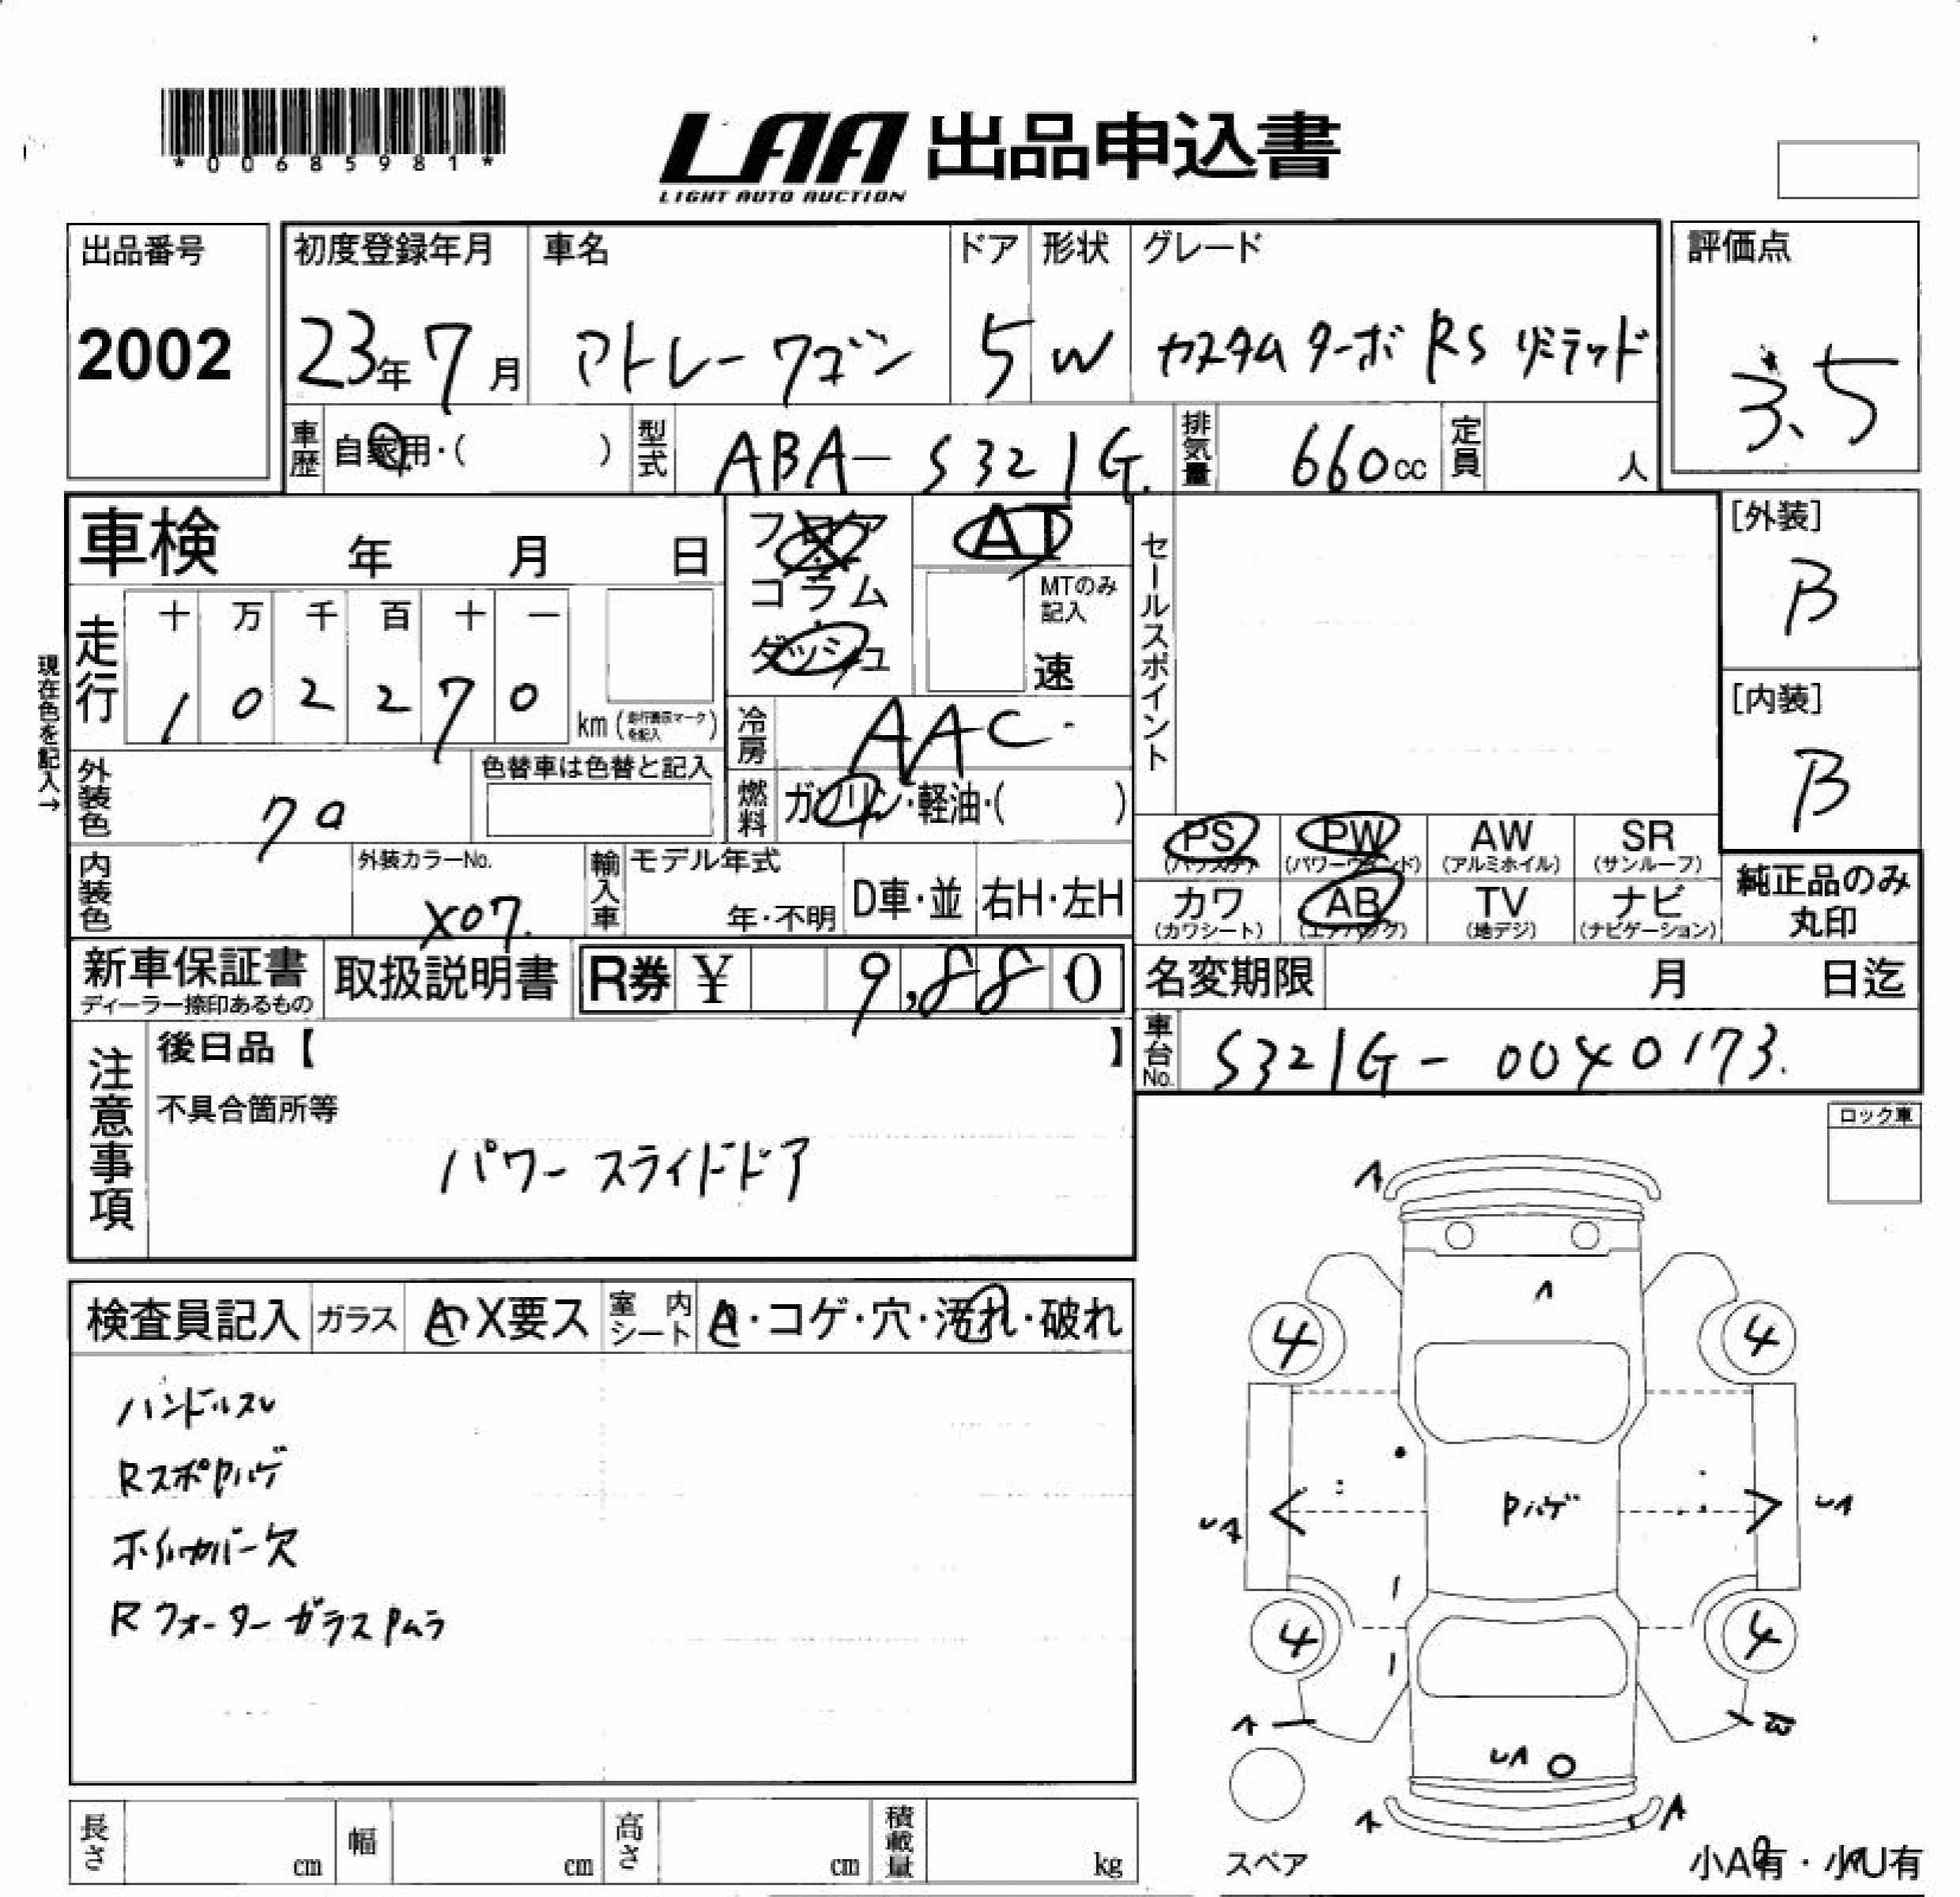 *00685981*
LAA 出品申込書
LIGHT AUTO AUCTION
出品番号
2002
初度登録年月
23年7月
車名
アトレーワゴン
ドア
5
形状
W
グレード
カスタムターボRSリミテッド
評価点
3.5
車歴
自家用・( )
型式
ABA-S321G
排気量
660cc
定員
人
車検 年 月 日
フロア
コラム
ダッシュ
AT
MTのみ記入
速
セールスポイント
[外装]
B
[内装]
B
現在色を記入→
走行
十 万 千 百 十 一
1 0 2 2 7 0
km (走行表示マークを記入)
冷房
AAC
燃料
ガソリン・軽油・( )
外装色
クロ
色替車は色替と記入
内装色
外装カラーNo.
X07.
輸入車
モデル年式
年・不明
D車・並
右H・左H
PS
(パワステ)
PW
(パワーウィンド)
AW
(アルミホイル)
SR
(サンルーフ)
カワ
(カワシート)
AB
(エアバッグ)
TV
(地デジ)
ナビ
(ナビゲーション)
純正品のみ
丸印
新車保証書
ディーラー捺印あるもの
取扱説明書
R券 ¥ 9,880
名変期限 月 日迄
車台No.
S321G-0040173.
注意事項
後日品【 】
不具合箇所等
パワースライドドア
ロック車
検査員記入
ガラス
A・X要ス
室内シート
A・コゲ・穴・汚れ・破れ
ハンドルスレ
RスポPハゲ
ホイルカバー欠
RクォーターガラスPムラ
A
A
4 4
UA
Pハゲ
UA
4 4
A
W
UA
A
A
スペア
小A有・小U有
長さ cm
幅 cm
高さ cm
積載量 kg